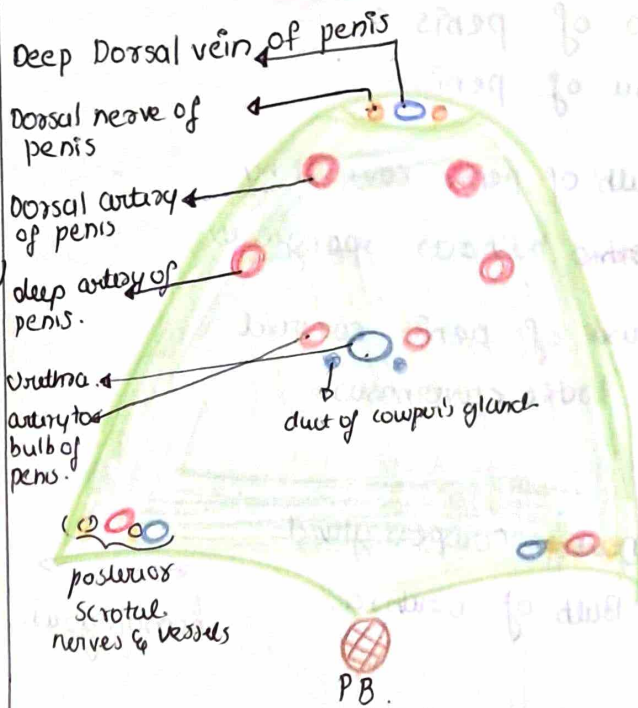 Deep Dorsal vein of penis
Dorsal nerve of
penis
Dorsal artary
of penis
deep artery of
penis.
Urethra.
artery to
bulb of
penis.
duct of cowper's gland
posterior
scrotal
nerves & vessels
PB.